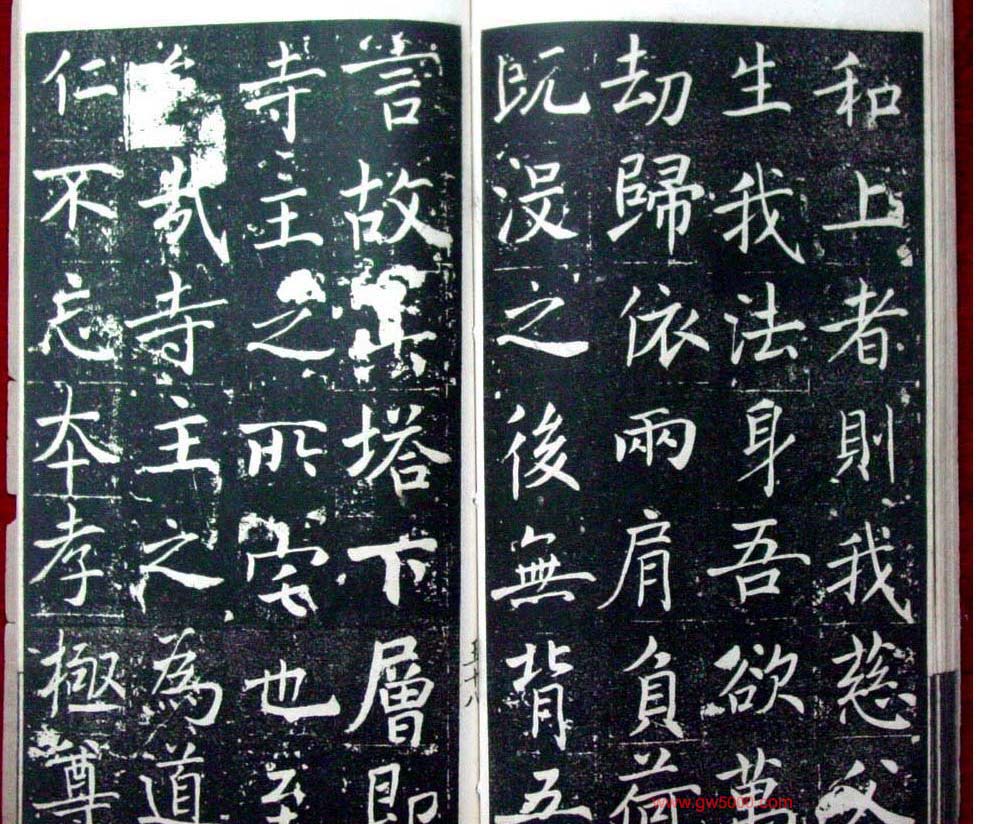 和上者則我慈父
生我法身吾欲萬
劫歸依兩肩負荷
既没之後無背吾
言故其塔下層即
寺主之所宅也至
哉寺主之為道
仁不忘本孝極尊
www.gw5000.com